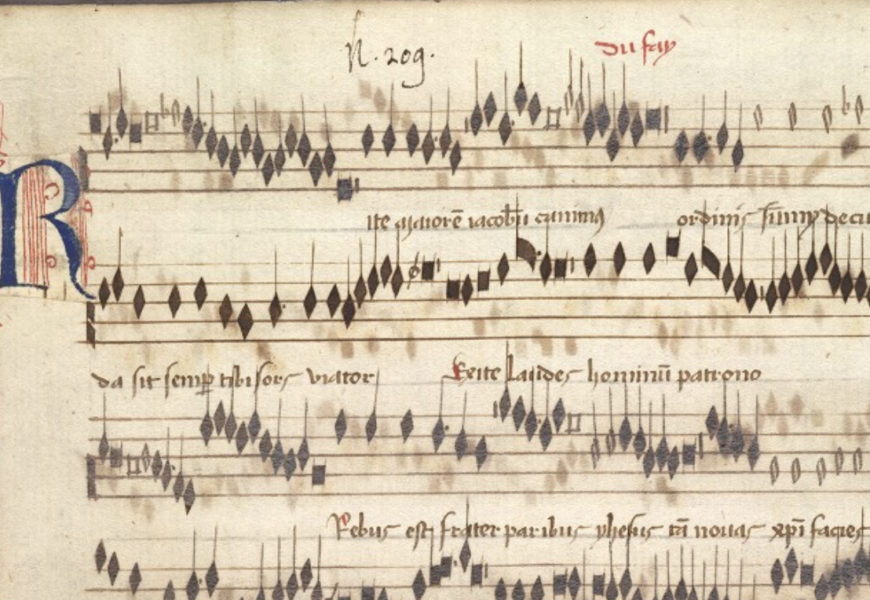 N. 209.
du fay
R
ite maiorē iacobū canimus ordinis summi decu
da sit semp tibi fors viator Ferte laudes hominū patrono
Rebus est frater paribus ephesus tā nouas xpi facies